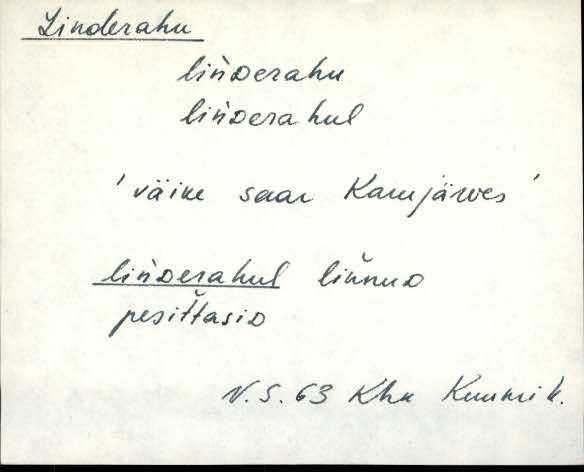 Linderahu
lin̆ᴅerahu
lin̆ᴅerahul
'väike saar Karujärves'
lin̆ᴅerahul lin̆nuᴅ
pesit̆tasiᴅ
N.S. 63 Khk Kuumik.